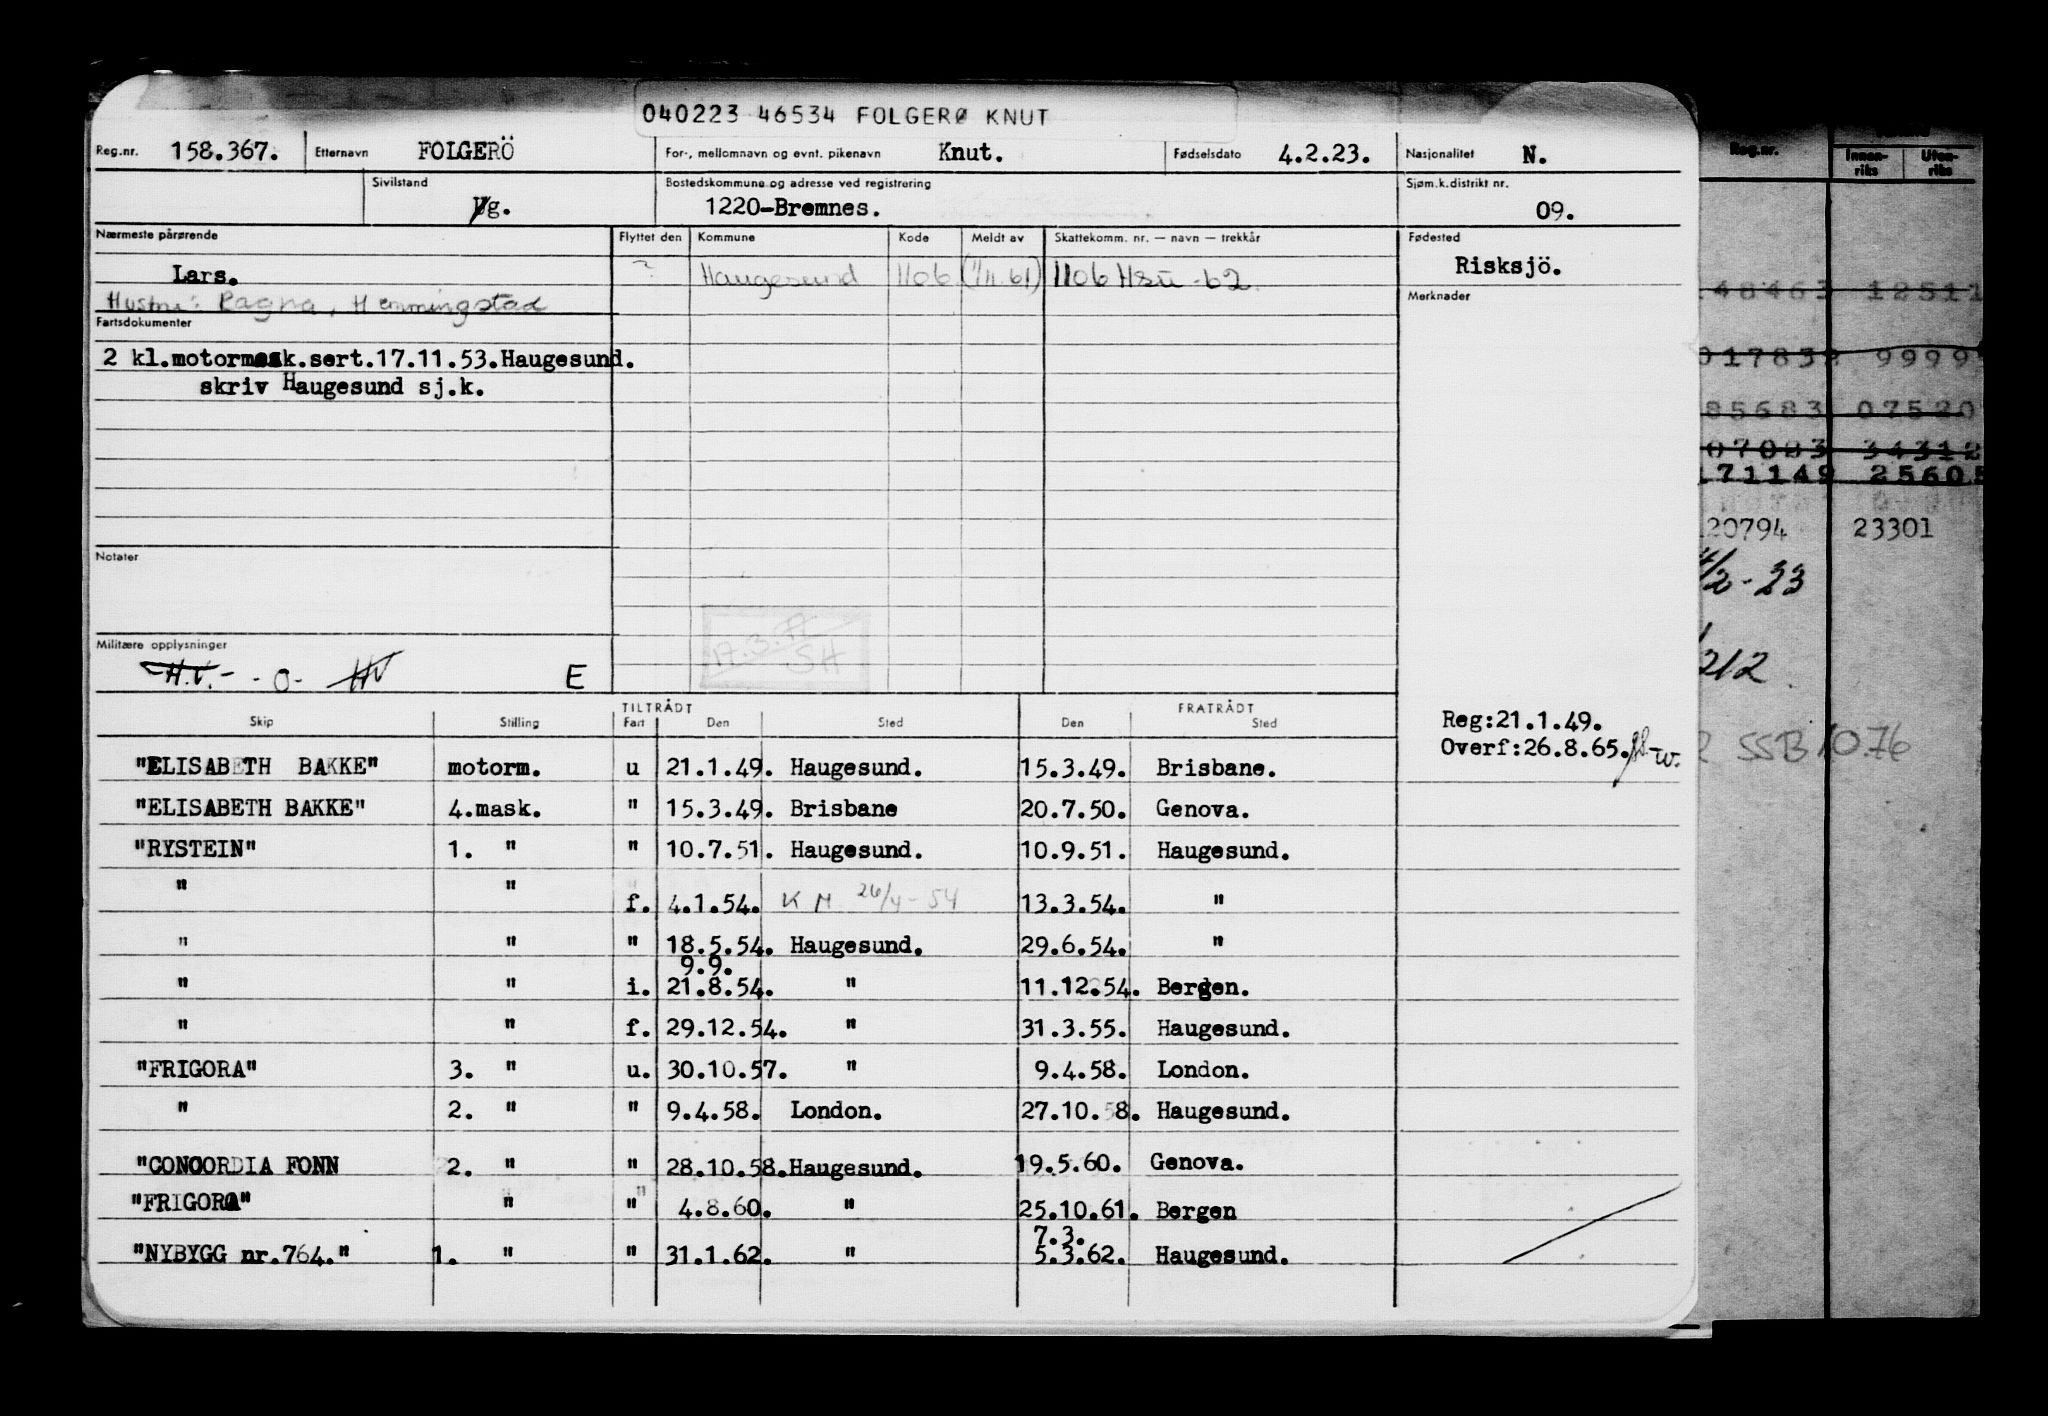 040223 46534 FOLGERØ KNUT
Reg.nr. 158.367. Etternavn FOLGERÖ For-, mellomnavn og evnt. pikenavn Knut. Fødselsdato 4.2.23. Nasjonalitet N.
Sivilstand g. Bostedskommune og adresse ved registrering 1220-Bremnes. Sjøm.k.distrikt nr. 09.
Nærmeste pårørende Flyttet den Kommune Kode Meldt av Skattekomm. nr. — navn — trekkår Fødested
Lars. ? Haugesund 1106 (1/11.61) 1106 Hsu -62. Risksjö.
Hustru: Ragna, Hemmingstad Merknader
Fartsdokumenter
2 kl.motormask.sert.17.11.53.Haugesund.
skriv Haugesund sj.k.
Notater
17.3.77
SH
Militære opplysninger
H.V.- -0- HV E
TILTRÅDT FRATRÅDT
Skip Stilling Fart Den Sted Den Sted
Reg:21.1.49.
Overf:26.8.65.
"ELISABETH BAKKE" motorm. u 21.1.49. Haugesund. 15.3.49. Brisbane.
"ELISABETH BAKKE" 4.mask. " 15.3.49. Brisbane 20.7.50. Genova.
"RYSTEIN" 1. " " 10.7.51. Haugesund. 10.9.51. Haugesund.
" " f. 4.1.54. K M 26/4-54 13.3.54. "
" " " 18.5.54. Haugesund. 29.6.54. "
9.9.
" " i. 21.8.54. " 11.12.54. Bergen.
" " f. 29.12.54. " 31.3.55. Haugesund.
"FRIGORA" 3. " u. 30.10.57. " 9.4.58. London.
" 2. " " 9.4.58. London. 27.10.58. Haugesund.
"CONCORDIA FONN 2. " " 28.10.58. Haugesund. 19.5.60. Genova.
"FRIGORA" " " 4.8.60. " 25.10.61. Bergen
7.3.
"NYBYGG nr.764." 1. " " 31.1.62. " 5.3.62. Haugesund.
Reg.nr. Innen-riks Uten-riks
48463 12511
017838 9999
85683 07520
07083 34312
171149 25605
120794 23301
4/2-23
212
SSB 10.76